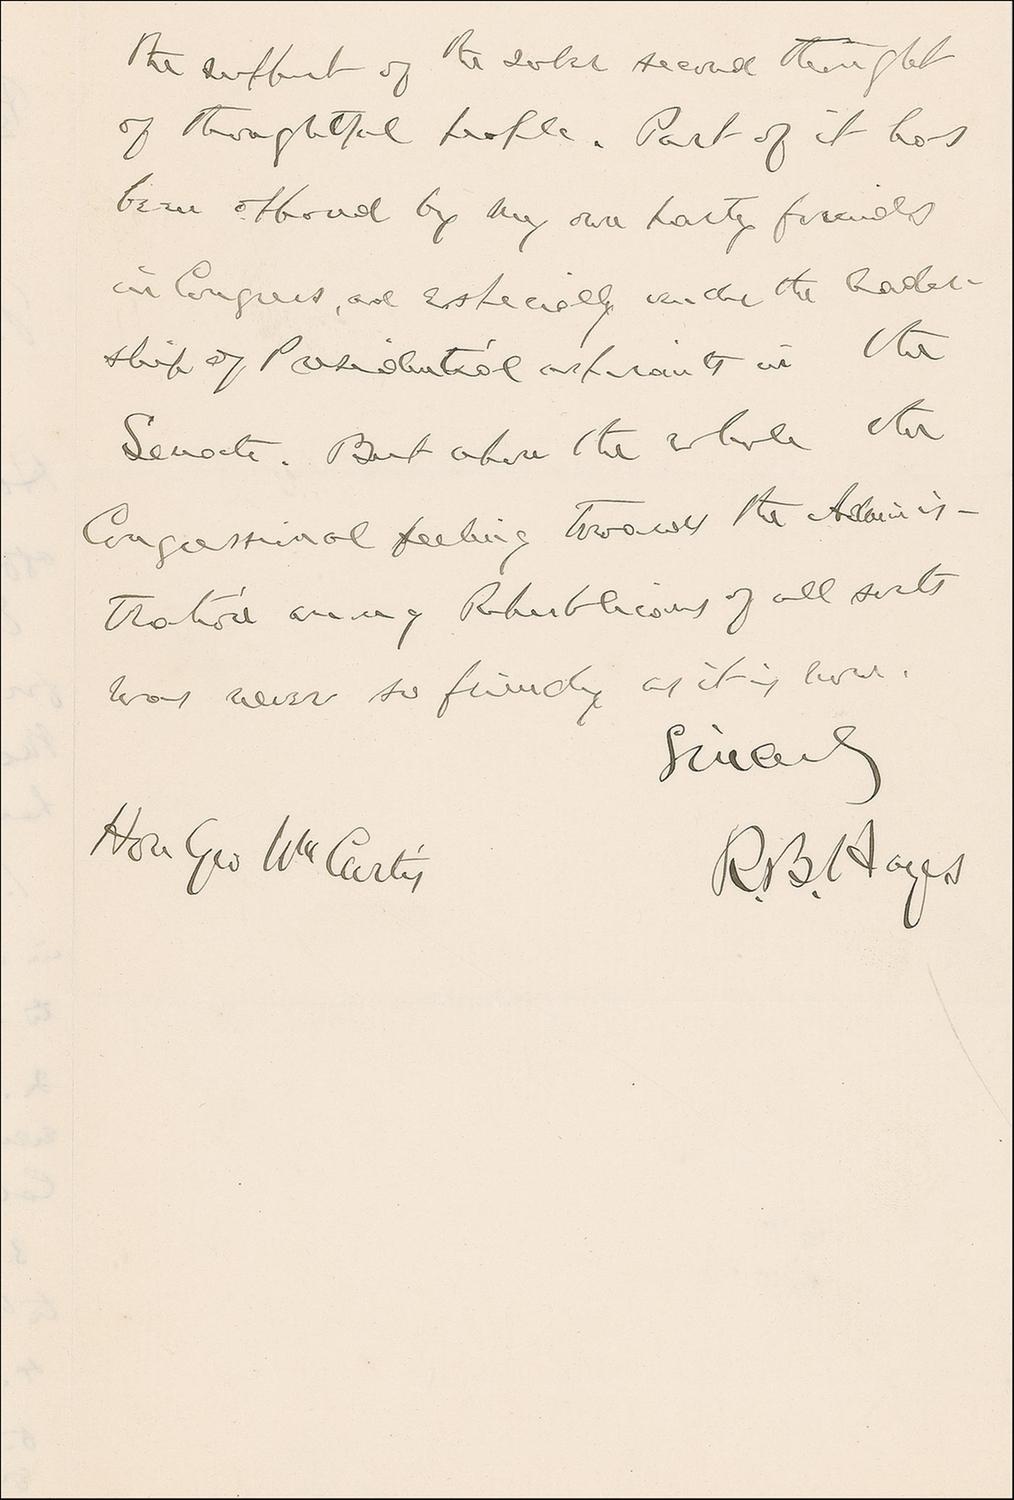 the support of the sober second thought
of thoughtful people. Part of it has
been opposed by my own party friends
in Congress, and especially under the leader-
ship of Presidential aspirants in the
Senate. But upon the whole the
Congressional feeling towards the Adminis-
tration among Republicans of all sorts
was never so friendly as it is now.
Sincerely
R. B. Hayes
Hon Geo Wm Curtis